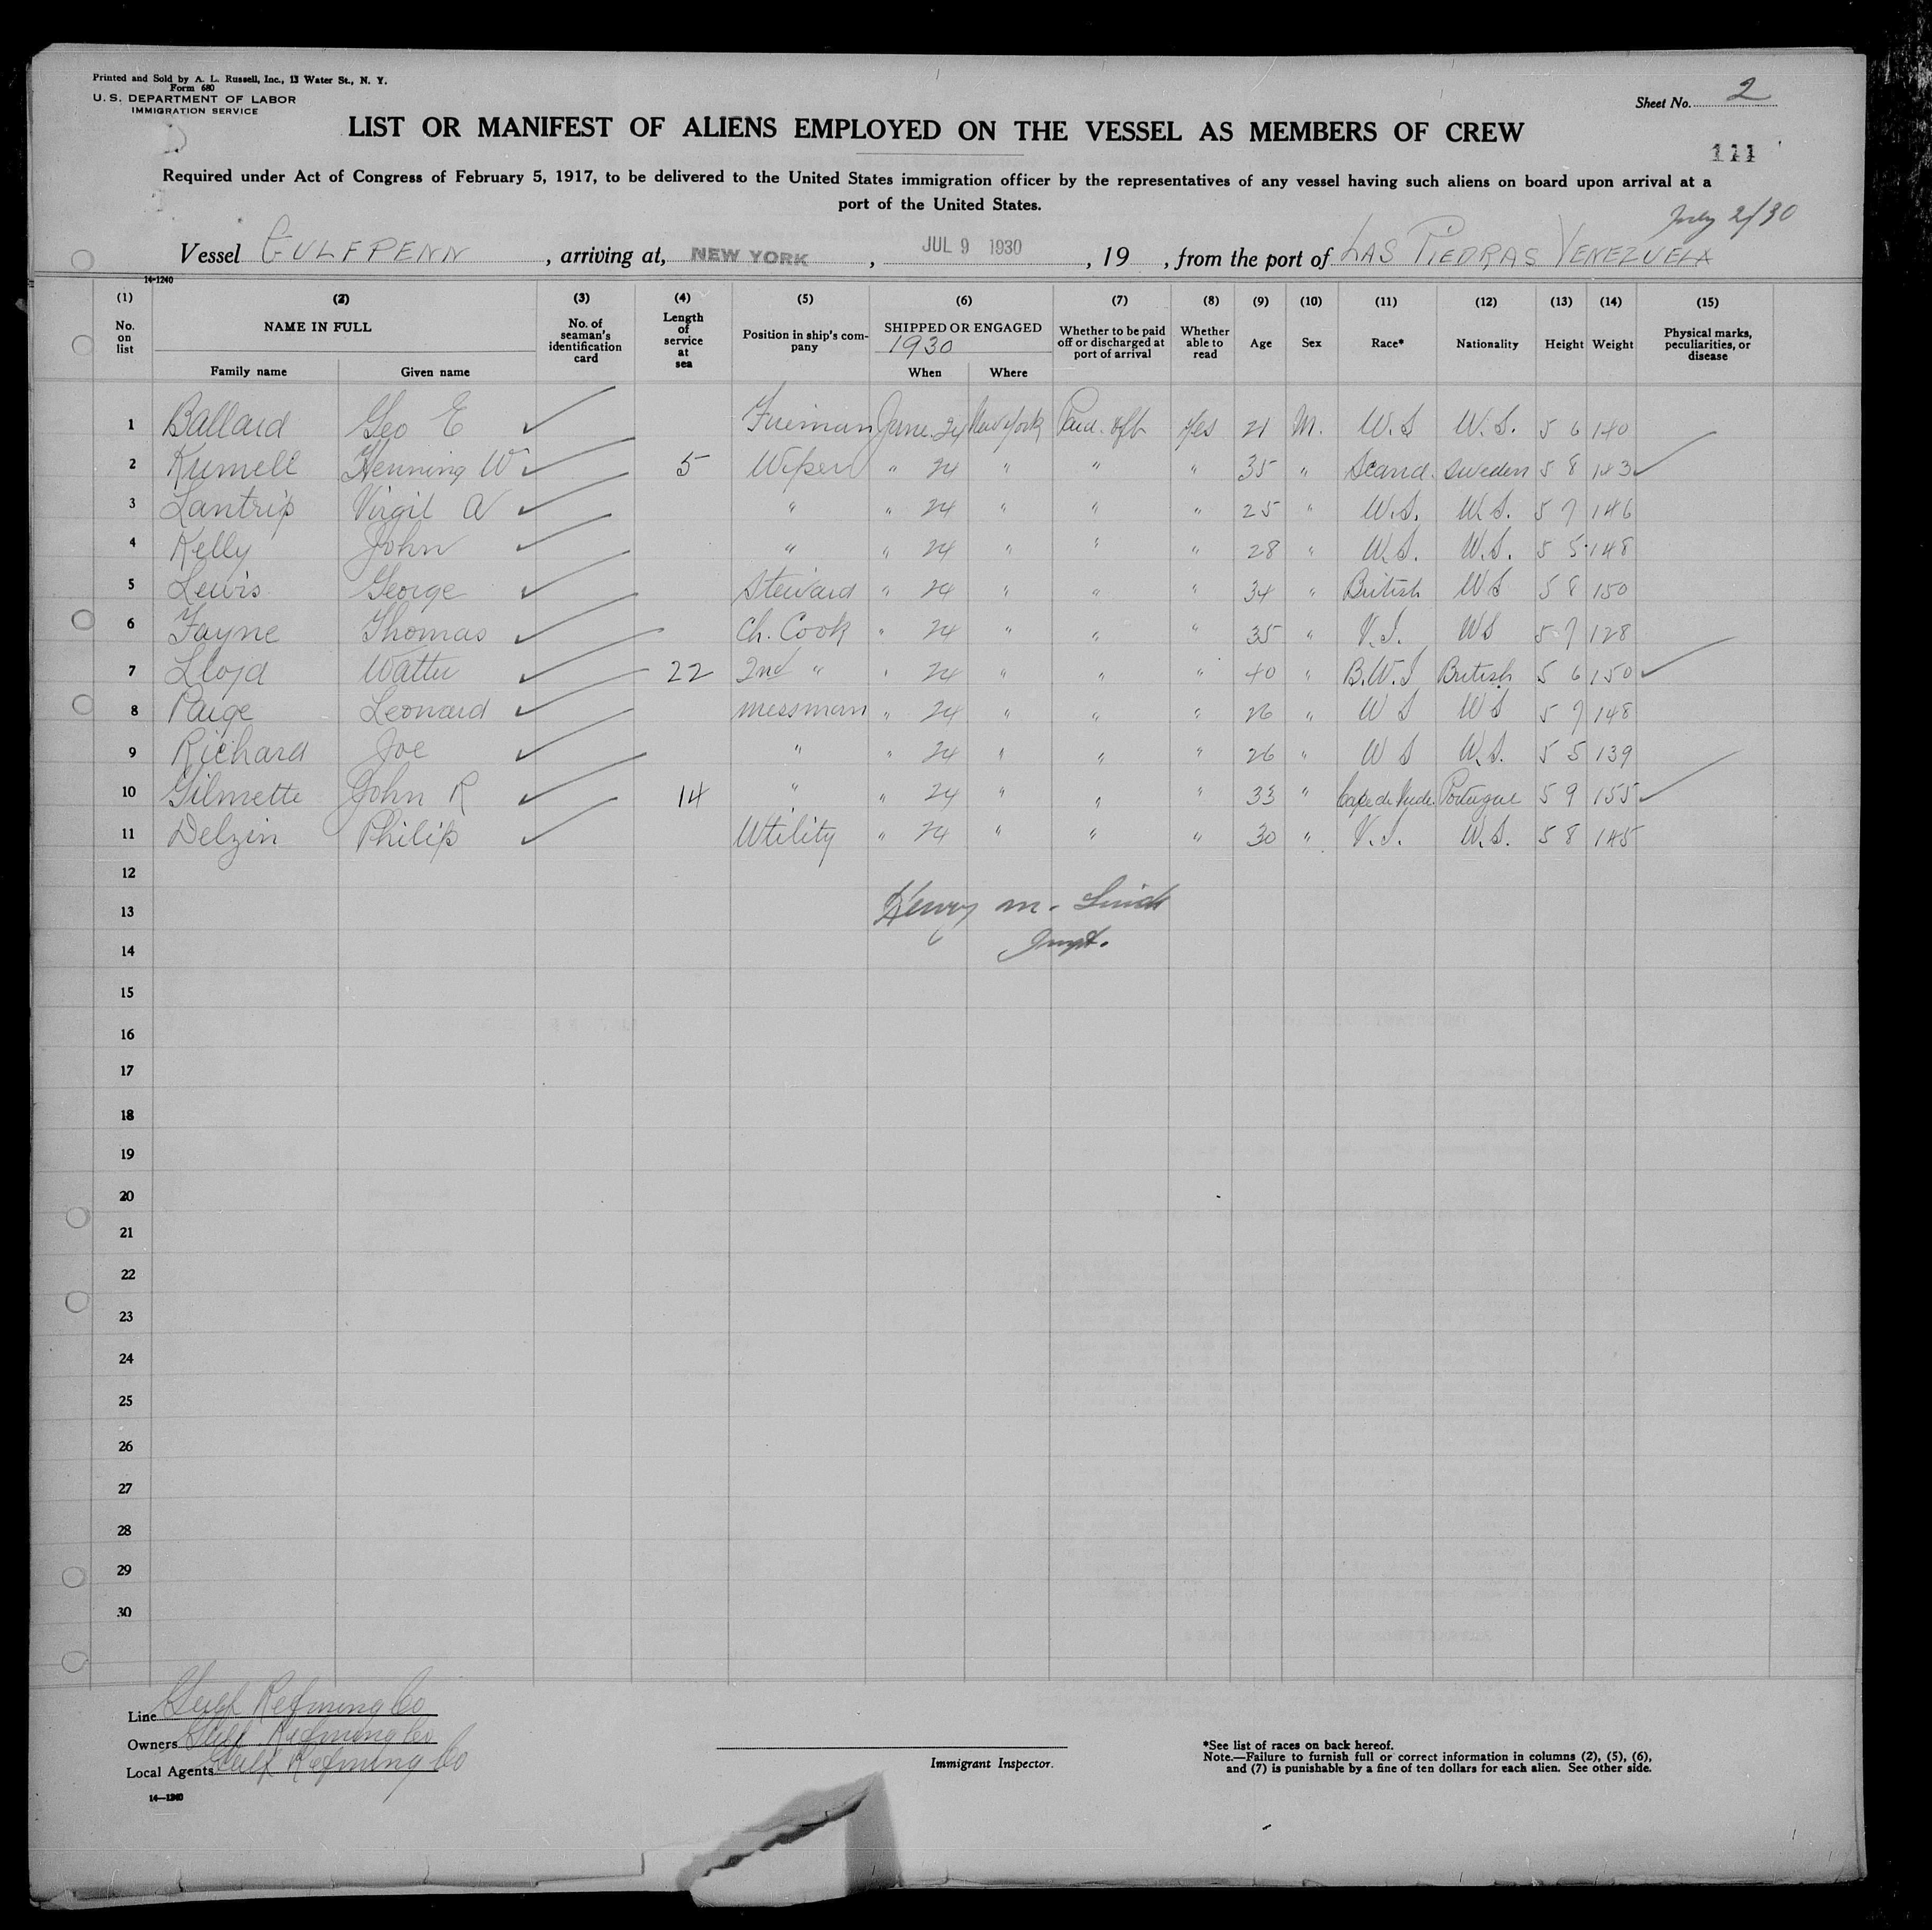 Printed and Sold by A. L. Russell, Inc., 13 Water St., N. Y.
Form 680
U. S. DEPARTMENT OF LABOR
IMMIGRATION SERVICE
Sheet No. 2
LIST OR MANIFEST OF ALIENS EMPLOYED ON THE VESSEL AS MEMBERS OF CREW
111
Required under Act of Congress of February 5, 1917, to be delivered to the United States immigration officer by the representatives of any vessel having such aliens on board upon arrival at a
port of the United States.
July 2/30
Vessel GULFPENN , arriving at, NEW YORK , JUL 9 1930 , 19 , from the port of LAS PIEDRAS VENEZUELA
14-1240
(1) (2) (3) (4) (5) (6) (7) (8) (9) (10) (11) (12) (13) (14) (15)
No. on list NAME IN FULL Family name Given name No. of seaman's identification card Length of service at sea Position in ship's company SHIPPED OR ENGAGED 1930 When Where Whether to be paid off or discharged at port of arrival Whether able to read Age Sex Race* Nationality Height Weight Physical marks, peculiarities, or disease
1 Ballard Geo E ✓ Fireman June 24 New York Paid off Yes 21 M. U.S U.S. 5 6 140
2 Rumell Henning W ✓ 5 Wiper " 24 " " " 35 " Scand. Sweden 5 8 143 ✓
3 Lantrip Virgil A ✓ " " 24 " " " 25 " U.S. U.S. 5 7 146
4 Kelly John ✓ " " 24 " " " 28 " U.S. U.S. 5 5 148
5 Lewis George ✓ Steward " 24 " " " 34 " British US 5 8 150
6 Fayne Thomas ✓ Ch. Cook " 24 " " " 35 " V.I. US 5 7 128
7 Lloyd Walter ✓ 22 2nd " " 24 " " " 40 " B.W.I British 5 6 150 ✓
8 Paige Leonard ✓ messman " 24 " " " 26 " U S U S 5 7 148
9 Richard Joe ✓ " " 24 " " " 26 " U S U.S. 5 5 139
10 Gilmette John R ✓ 14 " " 24 " " " 33 " Cape de Verde Portugue 5 9 155 ✓
11 Delzin Philip ✓ Utility " 24 " " " 30 " V.I. U.S. 5 8 145
12
13 Henry M.
14
15
16
17
18
19
20
21
22
23
24
25
26
27
28
29
30
Line Gulf Refining Co
Owners Gulf Refining Co
Local Agents Gulf Refining Co
Immigrant Inspector.
*See list of races on back hereof.
Note.—Failure to furnish full or correct information in columns (2), (5), (6),
and (7) is punishable by a fine of ten dollars for each alien. See other side.
14—1240